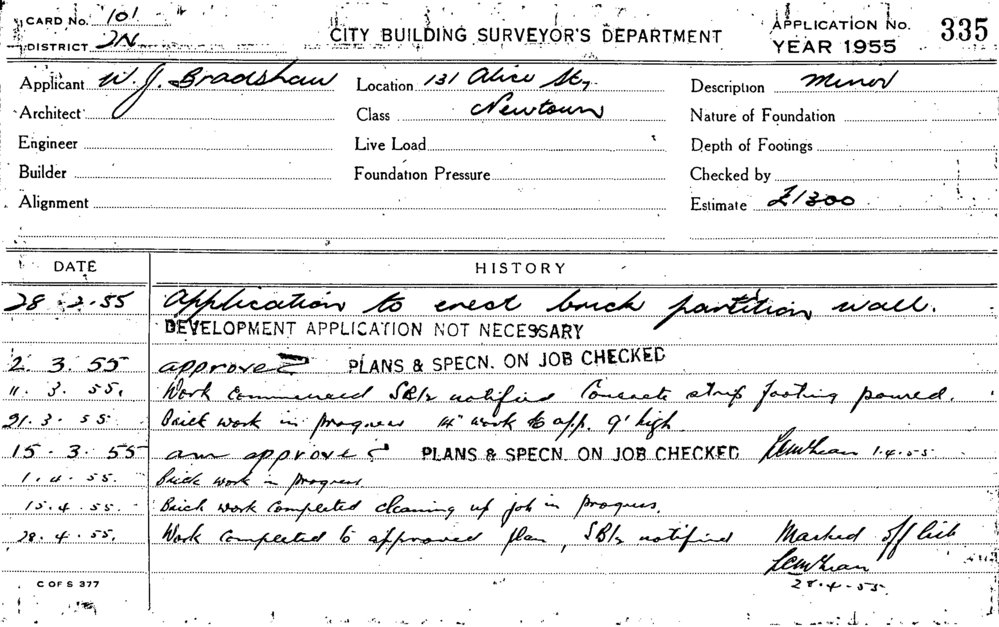 CARD No. 101
DISTRICT 2N
CITY BUILDING SURVEYOR'S DEPARTMENT
APPLICATION No. 335
YEAR 1955
Applicant W. J. Bradshaw Location 131 Alice St, Description Minor
Architect Class Newtown Nature of Foundation
Engineer Live Load Depth of Footings
Builder Foundation Pressure Checked by
Alignment Estimate £1300
DATE HISTORY
28.2.55 Application to erect brick partition wall.
DEVELOPMENT APPLICATION NOT NECESSARY
2.3.55 approved PLANS & SPECN. ON JOB CHECKED
11.3.55. Work commenced notified Concrete strip footing poured.
21.3.55 Brick work in progress 14" work to app. 9' high
15.3.55 am approved PLANS & SPECN. ON JOB CHECKED 1.4.55
1.4.55. Brick work in progress
15.4.55. Brick work completed cleaning up job in progress.
28.4.55. Work completed to approved plan, notified Marked off
28.4.55
C OF S 377